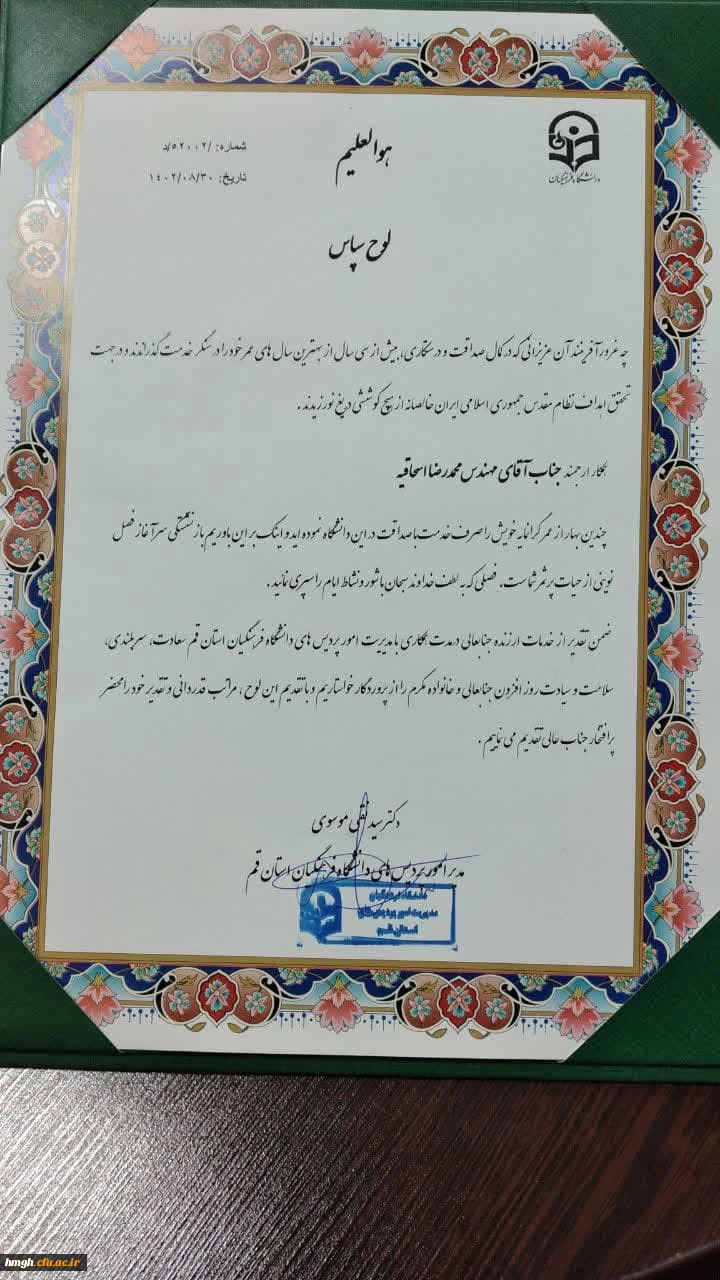 دانشگاه فرهنگیان
هوالعلیم
شماره: /۵۲۰۰۲/د
تاریخ: ۱۴۰۲/۰۸/۳۰
لوح سپاس
چه غرورآفرینند آن عزیزانی که در کمال صداقت و درستکاری، بیش از سی سال از بهترین سال های عمر خود را در سنگر خدمت گذراندند و در جهت
تحقق اهداف نظام مقدس جمهوری اسلامی ایران خالصانه از هیچ کوششی دریغ نورزیدند.
همکار ارجمند جناب آقای مهندس محمدرضا اسحاقیه
چندین بهار از عمر گرانمایه خویش را صرف خدمت با صداقت در این دانشگاه نموده اید و اینک بر این باوریم بازنشستگی سرآغاز فصل
نوینی از حیات پرثمر شماست. فصلی که به لطف خداوند سبحان با شور و نشاط ایام را سپری نمائید.
ضمن تقدیر از خدمات ارزنده جنابعالی در مدت همکاری با مدیریت امور پردیس های دانشگاه فرهنگیان استان قم سعادت، سربلندی،
سلامت و سیادت روز افزون جنابعالی و خانواده مکرم را از پروردگار خواستاریم و با تقدیم این لوح، مراتب قدردانی و تقدیر خود را محضر
پرافتخار جناب عالی تقدیم می نماییم.
دکتر سید نقی موسوی
مدیر امور پردیس های دانشگاه فرهنگیان استان قم
دانشگاه فرهنگیان
مدیریت امور پردیس های
استان قم
hmgh.cfu.ac.ir